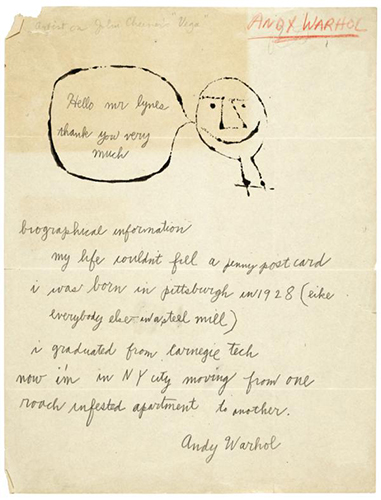 artist on John Cheever's "Vega"
ANDY WARHOL
Hello mr lynes
thank you very
much
biographical information
my life couldn't fill a penny post card
i was born in pittsburgh in 1928 (like
everybody else - in a steel mill)
i graduated from carnegie tech
now i'm in NY city moving from one
roach infested apartment to another.
Andy Warhol